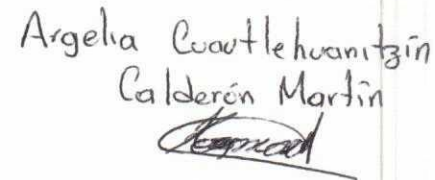 Argelia Cuautlehuanitzin
Calderón Martín